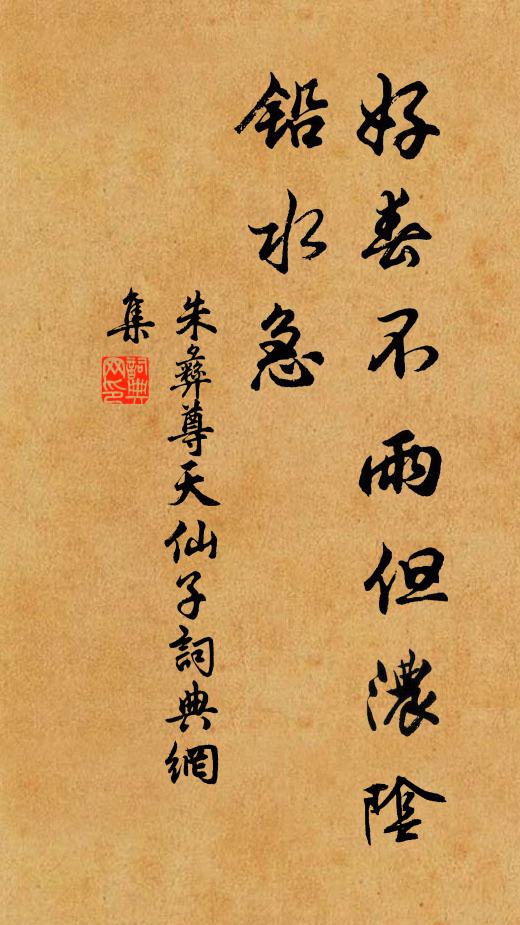 好春不雨但濃陰
鉛水急
朱彝尊天仙子詞典網
集
詞典網印